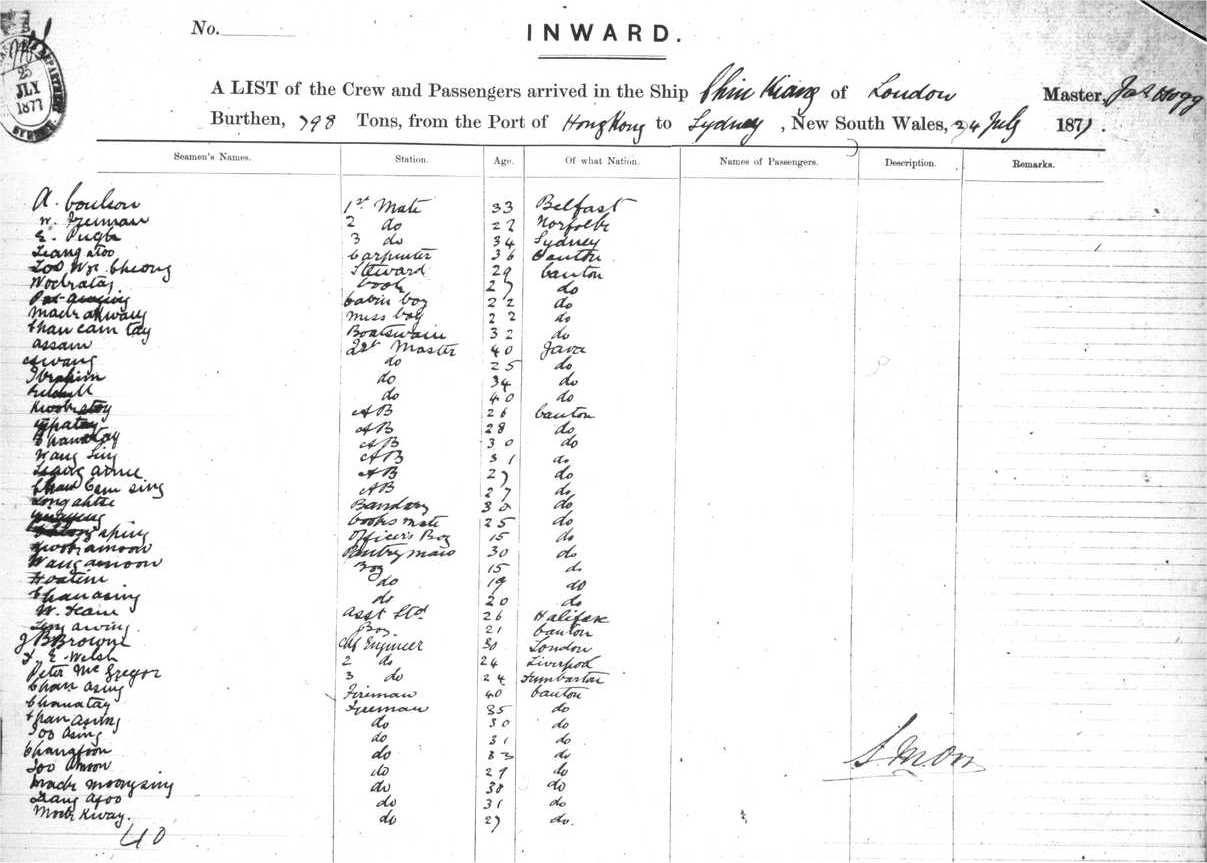 No.
INWARD.
25
JLY
1877
A LIST of the Crew and Passengers arrived in the Ship Chin Kiang of London Master, Jas Hogg
Burthen, 798 Tons, from the Port of Hong Kong to Sydney, New South Wales, 24 July 1877.
Seamen's Names. Station. Age. Of what Nation. Names of Passengers. Description. Remarks.
A. Coulson 1st Mate 33 Belfast
W. 2 do 27 Norfolk
E. Pugh 3 do 34 Sydney
Leang atoo Carpenter 36 Canton
Loo Wy Cheong Steward 29 Canton
Wochatai Cook 27 do
Cabin boy 22 do
Miss boy 22 do
Chan cam tay Boatswain 32 do
Assam Master 40 Java
Awang do 25 do
Ibrahim do 34 do
do 40 do
AB 26 Canton
AB 28 do
Chanatay AB 30 do
Wang Sing AB 31 do
AB 27 do
Chan Cam sing AB 27 do
30 do
Cooks mate 25 do
Officer's Boy 15 do
Pantry man 30 do
Wang amoon Boy 15 do
Hoatim do 19 do
Chan asing do 20 do
W. Asst Std 26 Halifax
Boy. 21 Canton
J B Browne Chf Engineer 30 London
E. Welsh 2 do 24 Liverpool
Peter McGregor 3 do 24 Dumbarton
Chan asing Fireman 40 Canton
Chanatay Fireman 35 do
Chan Asing do 30 do
Loo Asing do 31 do
do 33 do
Loo Amoon do 27 do
do 38 do
Leang Afoo do 31 do
Kway. do 27 do.
40